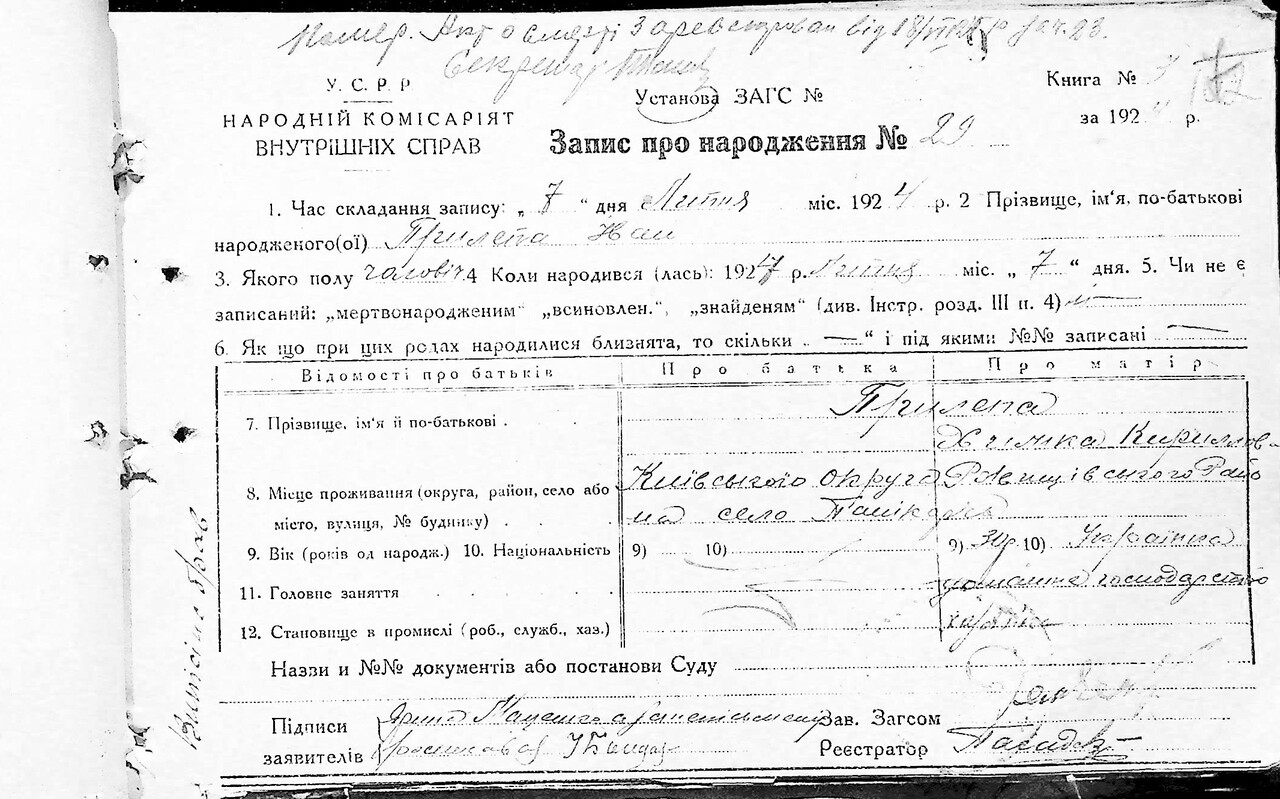 Помер. Акт о смерті Зареєстрован від 18/VII
Секретар
У. С. Р. Р
Книга №
НАРОДНІЙ КОМІСАРІЯТ
Установа ЗАГС №
за 1924 р.
ВНУТРІШНІХ СПРАВ
Запис про народження № 29
1. Час складання запису: „ 7 “ дня Липня міс. 1924 р. 2 Прізвище, ім‘я, по-батькові
народженого(ої) Прилепа Иван
3. Якого полу чоловіч. 4 Коли народився (лась): 192 р. Липня міс. „ 7 “ дня. 5. Чи не є
записаний: „мертвонародженим“ „всиновлен.“, „знайденям“ (див. Інстр. розд. III п. 4)
6. Як що при цих родах народилися близнята, то скільки „ — “ і під якими №№ записані —
Відомості про батьків
Про батька
Про матір
7. Прізвище, ім‘я й по-батькові
Прилепа
Химка Кириллов
8. Місце проживання (округа, район, село або
місто, вулиця, № будинку)
Київського округа Ржищівського Райо
на село
9. Вік (років од народж.) 10. Національність
9) 10)
9) 30 р 10) Українка
11. Головне заняття
домашне господарство
12. Становище в промислі (роб., служб., хаз.)
Назви и №№ документів або постанови Суду
Підписи
заявителів
Зав. Загсом
Реєстратор